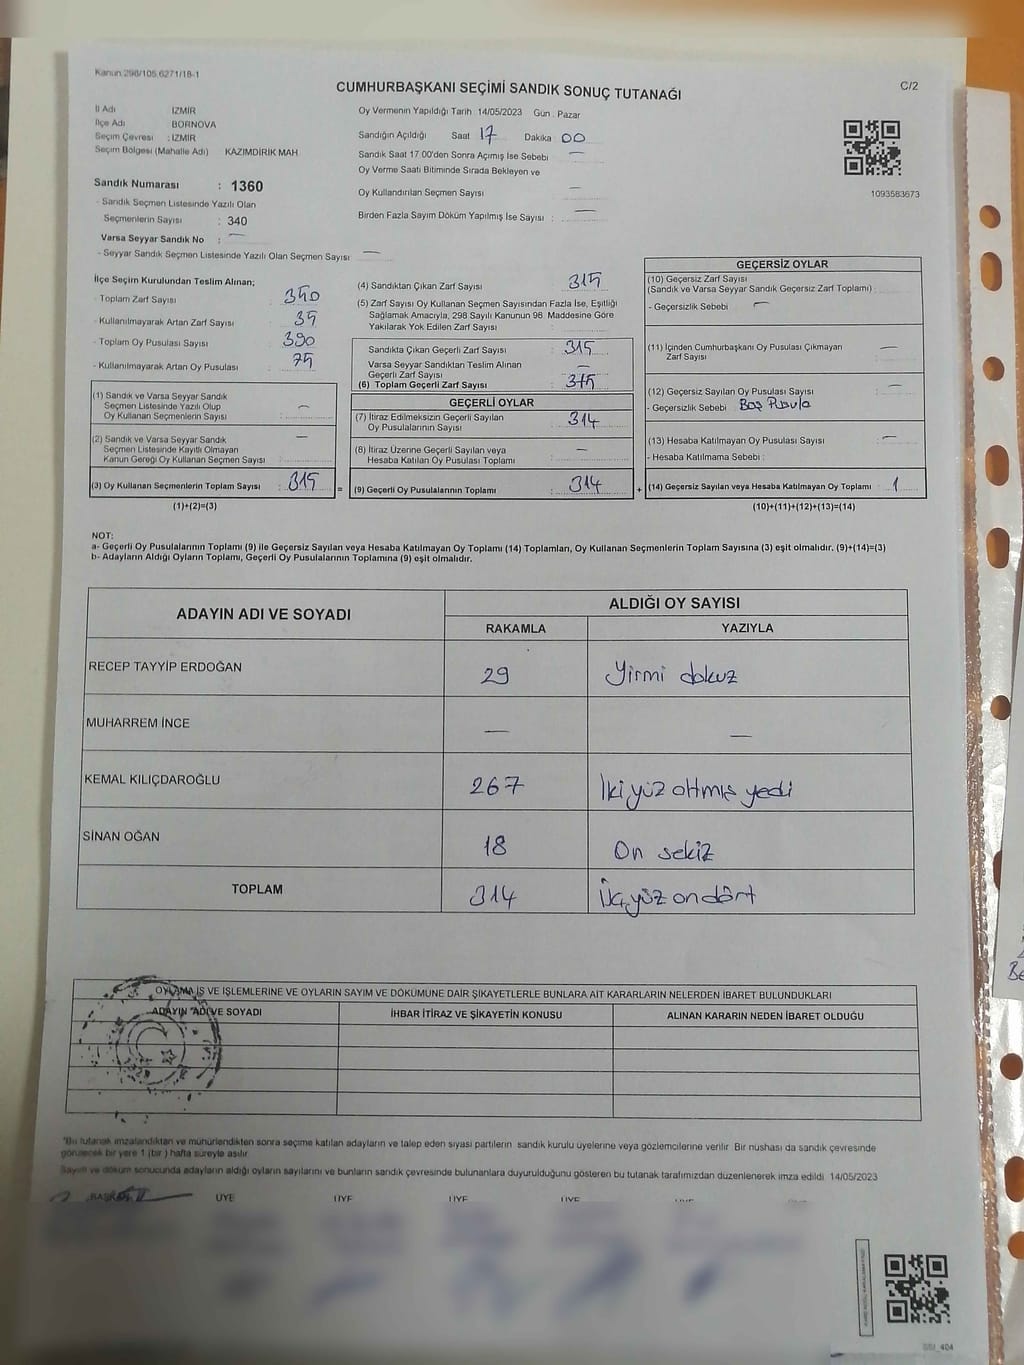 Kanun 298/105.6271/18-1
CUMHURBAŞKANI SEÇİMİ SANDIK SONUÇ TUTANAĞI
C/2
İl Adı İZMİR
İlçe Adı BORNOVA
Seçim Çevresi : İZMİR
Seçim Bölgesi (Mahalle Adı) KAZIMDİRİK MAH
Sandık Numarası : 1360
- Sandık Seçmen Listesinde Yazılı Olan
Seçmenlerin Sayısı : 340
Varsa Seyyar Sandık No : —
- Seyyar Sandık Seçmen Listesinde Yazılı Olan Seçmen Sayısı —
Oy Vermenin Yapıldığı Tarih 14/05/2023 Gün . Pazar
Sandığın Açıldığı Saat 17 Dakika 00
Sandık Saat 17 00'den Sonra Açımış İse Sebebi —
Oy Verme Saati Bitiminde Sırada Bekleyen ve
Oy Kullandırılan Seçmen Sayısı —
Birden Fazla Sayım Döküm Yapılmış İse Sayısı : —
1093583673
İlçe Seçim Kurulundan Teslim Alınan;
- Toplam Zarf Sayısı 350
- Kullanılmayarak Artan Zarf Sayısı 35
- Toplam Oy Pusulası Sayısı 390
- Kullanılmayarak Artan Oy Pusulası 75
(1) Sandık ve Varsa Seyyar Sandık
Seçmen Listesinde Yazılı Olup
Oy Kullanan Seçmenlerin Sayısı : —
(2) Sandık ve Varsa Seyyar Sandık
Seçmen Listesinde Kayıtlı Olmayan
Kanun Gereği Oy Kullanan Seçmen Sayısı : —
(3) Oy Kullanan Seçmenlerin Toplam Sayısı : 315
(1)+(2)=(3)
(4) Sandıktan Çıkan Zarf Sayısı : 315
(5) Zarf Sayısı Oy Kullanan Seçmen Sayısından Fazla İse, Eşitliği
Sağlamak Amacıyla, 298 Sayılı Kanunun 98. Maddesine Göre
Yakılarak Yok Edilen Zarf Sayısı :
Sandıkta Çıkan Geçerli Zarf Sayısı : 315
Varsa Seyyar Sandıktan Teslim Alınan
Geçerli Zarf Sayısı : —
(6) Toplam Geçerli Zarf Sayısı : 315
GEÇERLİ OYLAR
(7) İtiraz Edilmeksizin Geçerli Sayılan
Oy Pusulalarının Sayısı : 314
(8) İtiraz Üzerine Geçerli Sayılan veya
Hesaba Katılan Oy Pusulası Toplamı : —
= (9) Geçerli Oy Pusulalarının Toplamı : 314 +
GEÇERSİZ OYLAR
(10) Geçersiz Zarf Sayısı
(Sandık ve Varsa Seyyar Sandık Geçersiz Zarf Toplamı) :
- Geçersizlik Sebebi : —
(11) İçinden Cumhurbaşkanı Oy Pusulası Çıkmayan
Zarf Sayısı : —
(12) Geçersiz Sayılan Oy Pusulası Sayısı : —
- Geçersizlik Sebebi : Boş Pusula
(13) Hesaba Katılmayan Oy Pusulası Sayısı : —
- Hesaba Katılmama Sebebi :
(14) Geçersiz Sayılan veya Hesaba Katılmayan Oy Toplamı : 1
(10)+(11)+(12)+(13)=(14)
NOT:
a- Geçerli Oy Pusulalarının Toplamı (9) ile Geçersiz Sayılan veya Hesaba Katılmayan Oy Toplamı (14) Toplamları, Oy Kullanan Seçmenlerin Toplam Sayısına (3) eşit olmalıdır. (9)+(14)=(3)
b- Adayların Aldığı Oyların Toplamı, Geçerli Oy Pusulalarının Toplamına (9) eşit olmalıdır.
ADAYIN ADI VE SOYADI
ALDIĞI OY SAYISI
RAKAMLA YAZIYLA
RECEP TAYYİP ERDOĞAN 29 Yirmi dokuz
MUHARREM İNCE — —
KEMAL KILIÇDAROĞLU 267 İkiyüz altmış yedi
SİNAN OĞAN 18 On sekiz
TOPLAM 314 Üçyüz ondört
OYLAMA İŞ VE İŞLEMLERİNE VE OYLARIN SAYIM VE DÖKÜMÜNE DAİR ŞİKAYETLERLE BUNLARA AİT KARARLARIN NELERDEN İBARET BULUNDUKLARI
ADAYIN ADI VE SOYADI İHBAR İTİRAZ VE ŞİKAYETİN KONUSU ALINAN KARARIN NEDEN İBARET OLDUĞU
*Bu tutanak imzalandıktan ve mühürlendikten sonra seçime katılan adayların ve talep eden siyasi partilerin sandık kurulu üyelerine veya gözlemcilerine verilir Bir nüshası da sandık çevresinde
görünecek bir yere 1 (bir ) hafta süreyle asılır.
Sayım ve döküm sonucunda adayların aldığı oyların sayılarını ve bunların sandık çevresinde bulunanlara duyurulduğunu gösteren bu tutanak tarafımızdan düzenlenerek imza edildi 14/05/2023
BAŞKAN ÜYE ÜYE ÜYE ÜYE